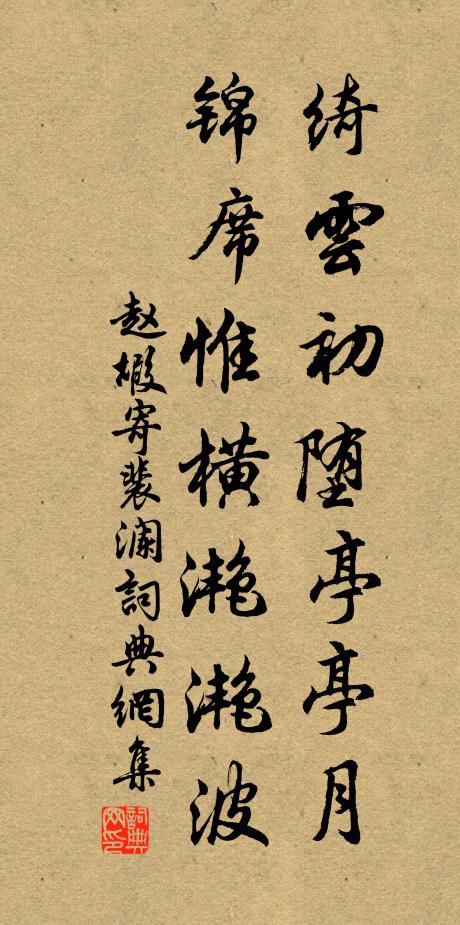 绮雲初堕亭亭月
锦席惟横滟滟波
赵嘏寄裴澜詞典網集
詞典网印